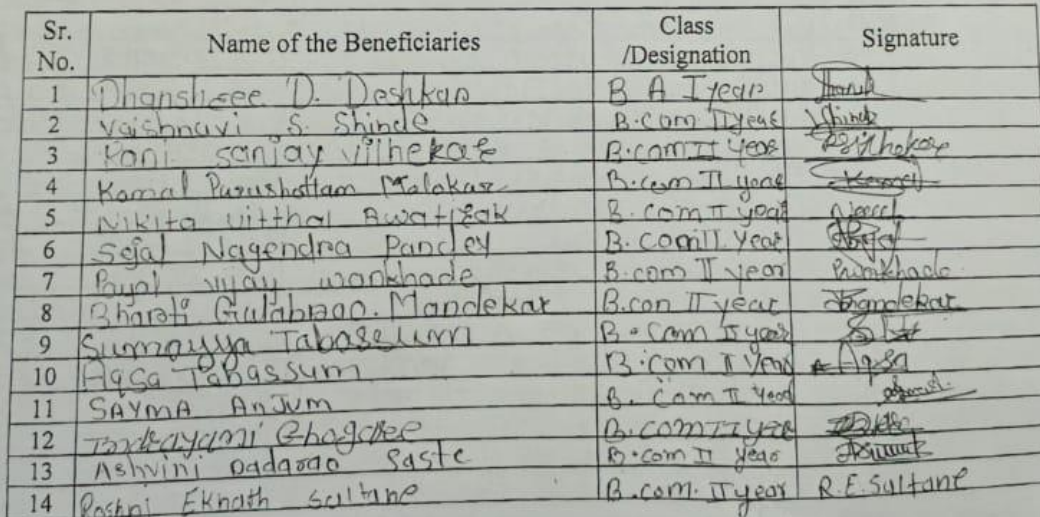 Sr. No. Name of the Beneficiaries Class /Designation Signature
1 Dhanshree D. Deshkar B A I year
2 Vaishnavi S. Shinde B.com II year Shinde
3 Rani sanjay vilhekar B.com II year
4 Komal Purushottam Malokar B.com II year Komal
5 Nikita vitthal Awatirak B.com II year
6 Sejal Nagendra Pandey B.com II year
7 Payal vijay wankhade B.com II year Pwankhade
8 Bharati Gulabrao. Mandekar B.con II year
9 Sumayya Tabassum B.com II year
10 Aqsa Tabassum B.com II year Aqsa
11 SAYMA AnJUM B. com II year
12 B.com II year
13 Ashvini Dadarao Saste B.com II year
14 Roshni Eknath sultane B.com. II year R.E.Sultane